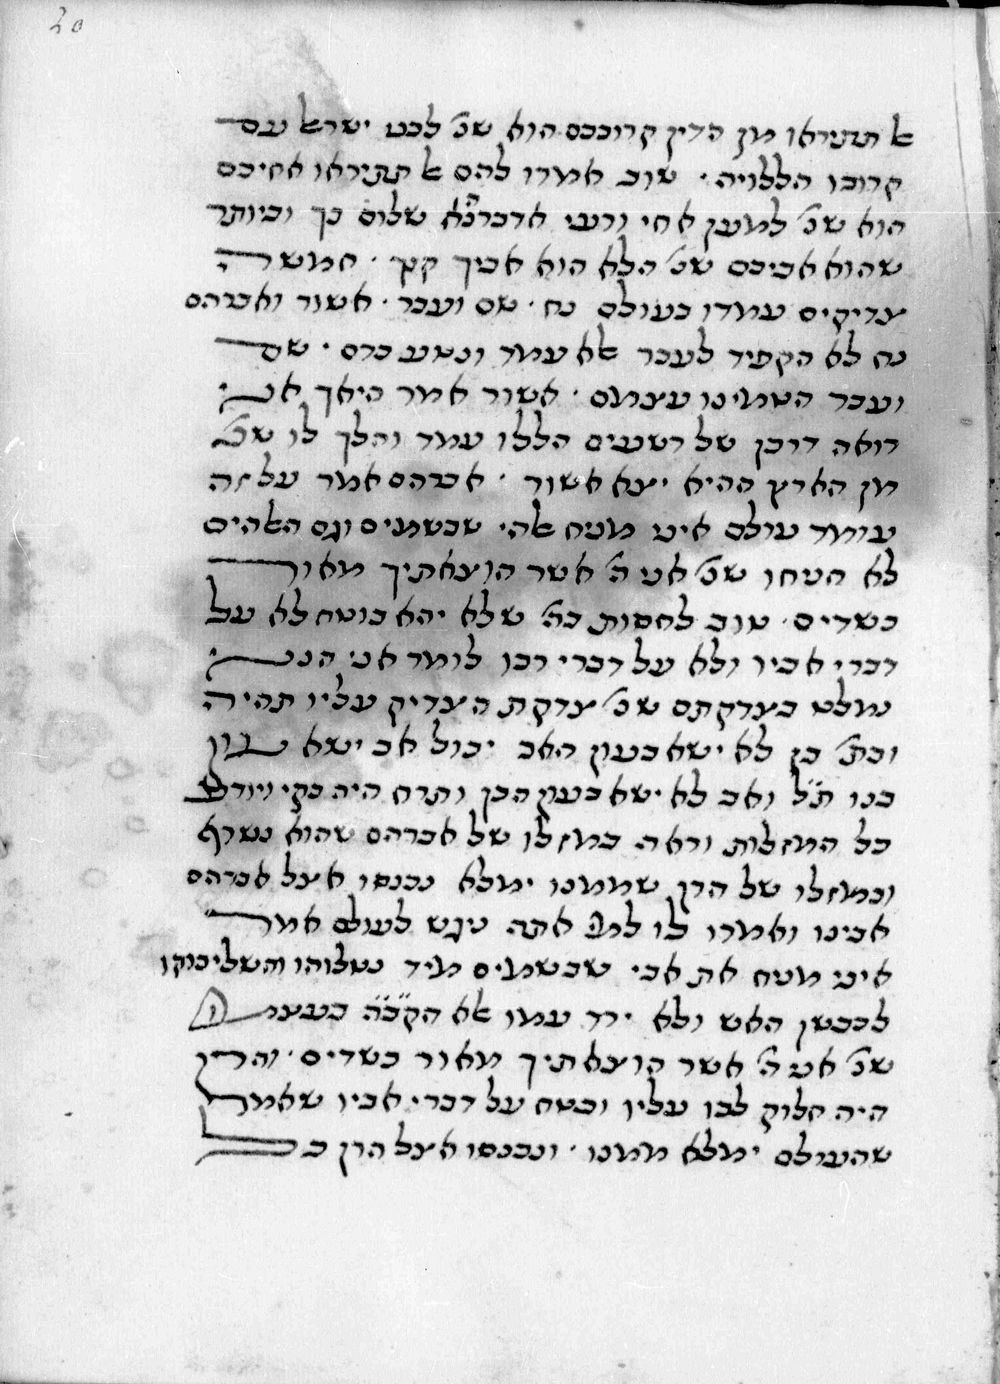 20
אל תתיראו מן הדין קרובכם הוא שנ' לבני ישראל עם
קרובו הללויה. שוב אמרו להם אל תתיראו אחיכם
הוא שנ' למען אחי ורעי אדברה נא שלום בך וביותר
שהוא אביכם שנ' הלא הוא אביך קנך. חמשה
צדיקים עמדו בעולם נח. שם ועבר. אשור ואברהם
נח לא הקפיד לעבר אלא עמד ונטע כרם. שם
ועבר הטמינו עצמם. אשור אמר היאך אני
רואה דרכן של רשעים הללו עמד והלך לו שנ'
מן הארץ ההיא יצא אשור. אברהם אמר על זה
עומד עולם איני מניח אלהי שבשמים וגם האלהים
לא הניחו שנ' אני ה' אשר הוצאתיך מאור
כשדים. טוב לחסות בה' שלא יהא בוטח לא על
דברי אביו ולא על דברי רבו לומר אני הנני
נמלט בצדקתם שנ' צדקת הצדיק עליו תהיה
וכת' בן לא ישא בעון האב יכול אב ישא עון
בנו ת"ל ואב לא ישא בעון הבן ותרח היה בקי ויודע
כל המזלות וראה במזלו של אברהם שהוא נשרף
ובמזלו של הרן שממנו ימלא נכנסו אצל אברהם
אבינו ואמרו לו למי אתה נוגש לעולם אמר
איני מניח את אבי שבשמים מיד נטלוהו והשליכוהו
לכבשן האש ולא ירד עמו אלא הקב"ה בעצמו
שנ' אני ה' אשר הוצאתיך מאור כשדים. והרן
היה חלוק לבו עליו ובטח על דברי אביו שאמר
שהעולם ימלא ממנו. ונכנסו אצל הרן כל